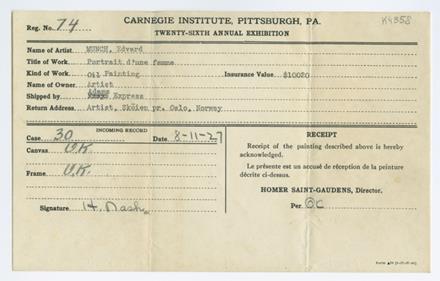 CARNEGIE INSTITUTE, PITTSBURGH, PA.
K4358
Reg. No. 74
TWENTY-SIXTH ANNUAL EXHIBITION
Name of Artist MUNCH, Edvard
Title of Work Portrait d'une femme
Kind of Work Oil Painting Insurance Value $10020
Name of Owner Artist
Adams
Shipped by Express
Return Address Artist, Sköien pr. Oslo, Norway
INCOMING RECORD
Case 30 Date 8-11-27
Canvas O.K.
Frame O.K.
Signature H. Nash
RECEIPT
Receipt of the painting described above is hereby
acknowledged.
Le présente est un accusé de réception de la peinture
décrite ci-dessus.
HOMER SAINT-GAUDENS, Director.
Per